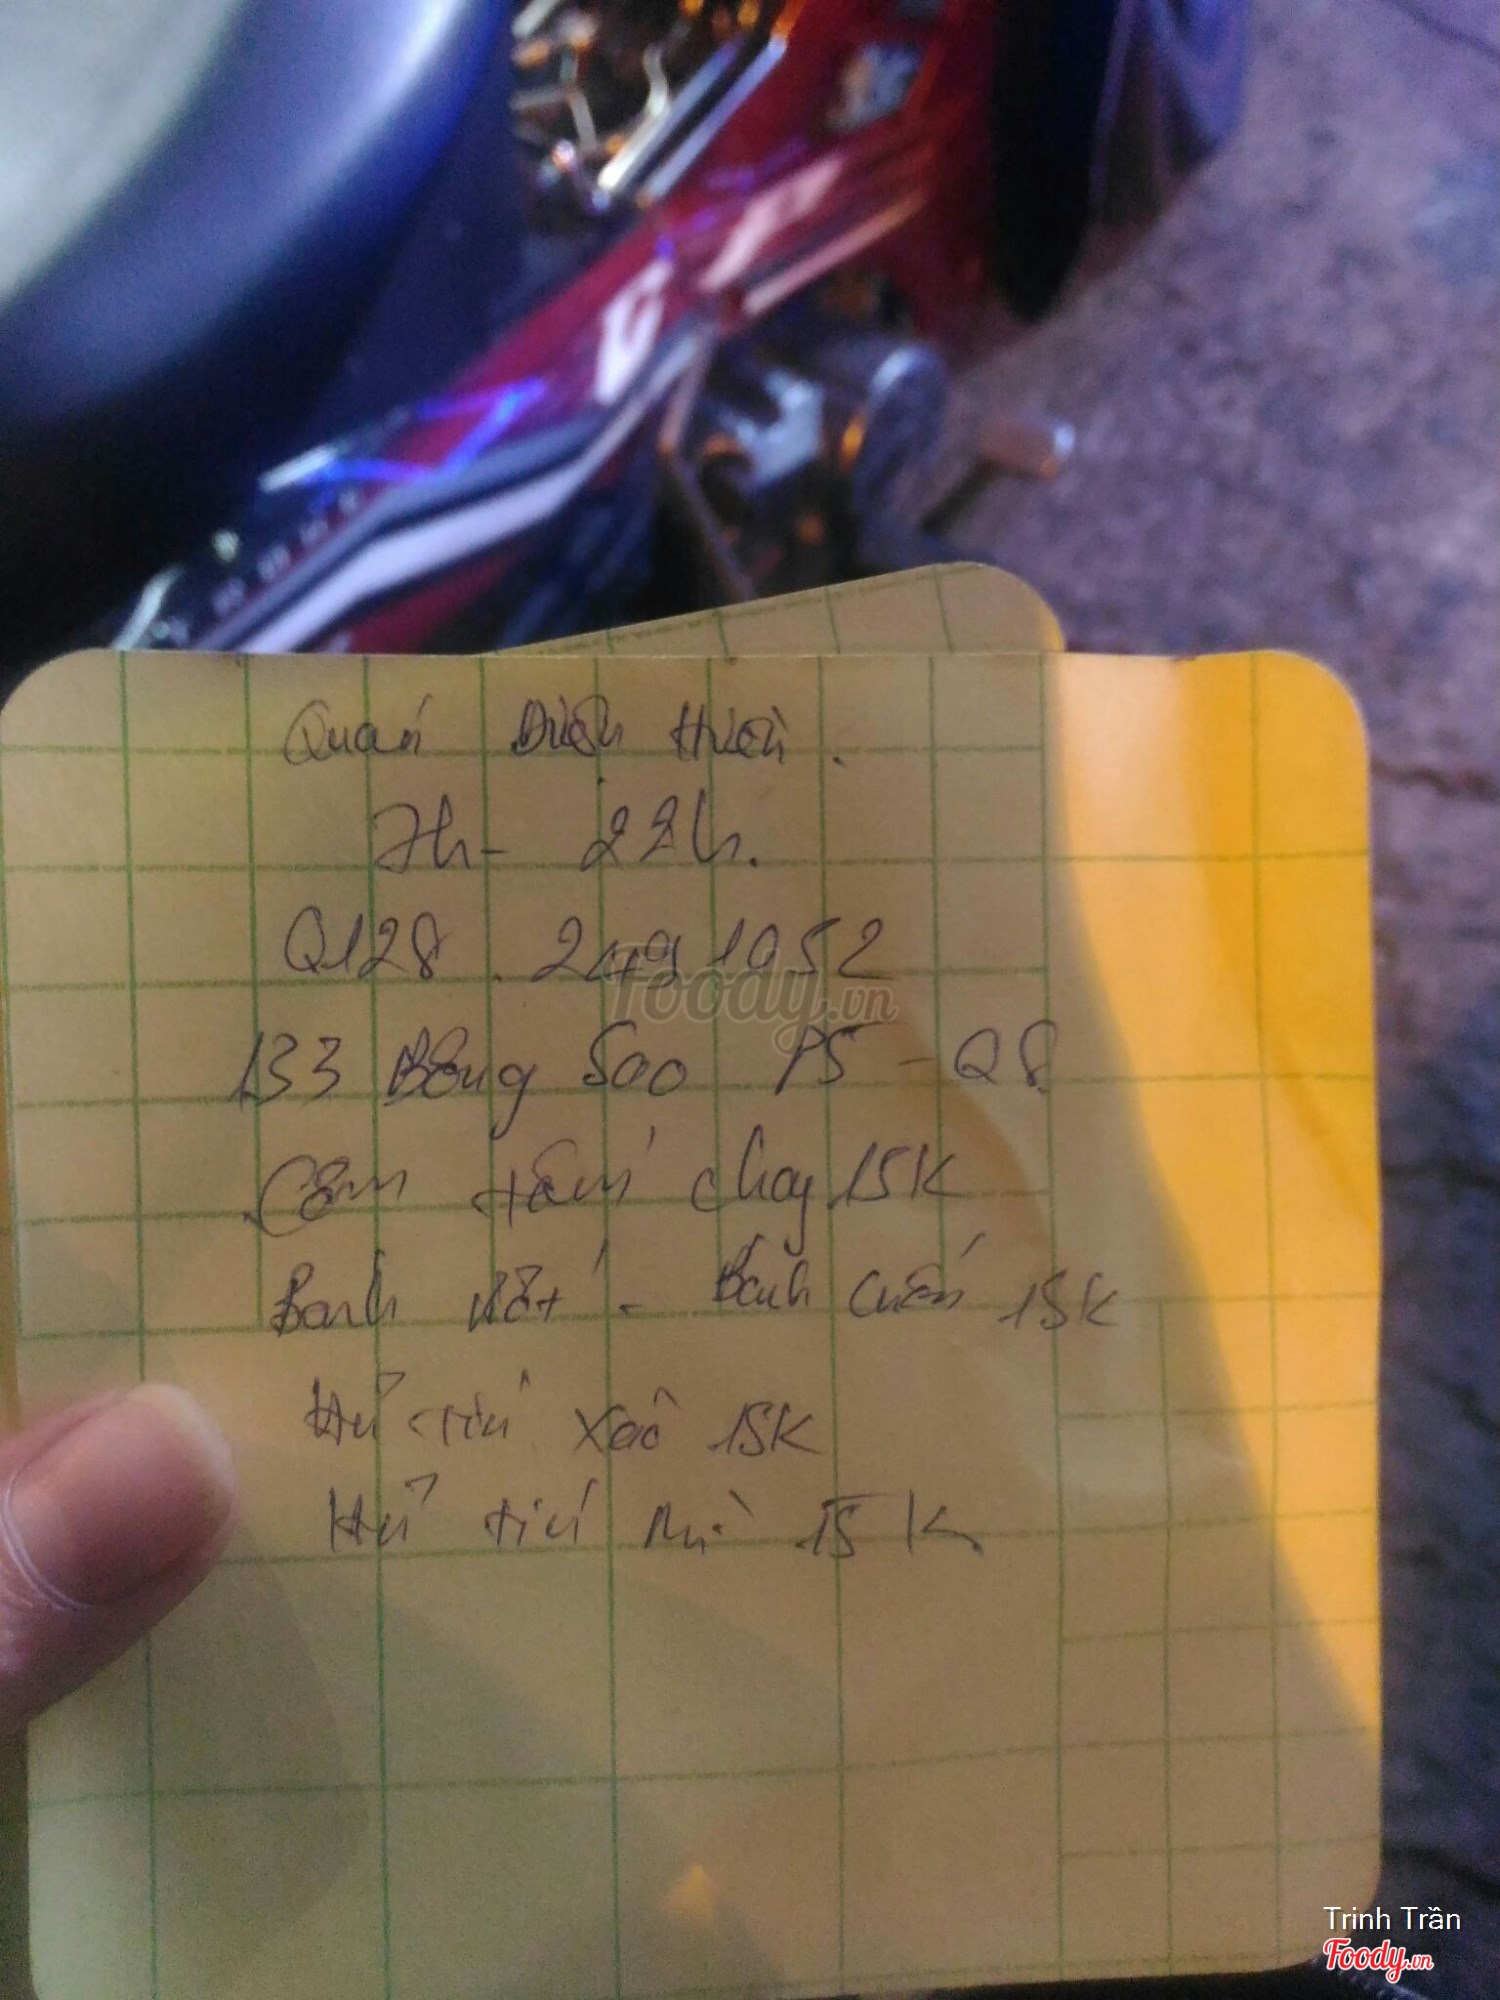 Quán Diệu Hiền.
7h - 22h.
0128. 2491052
133 Bông Sao P5 - Q8
Cơm tấm chay 15K
Bánh ướt - Bánh cuốn 15K
Hủ tiú xào 15K
Hủ tiú mì 15K
Foody.vn
Trinh Trần
Foody.vn